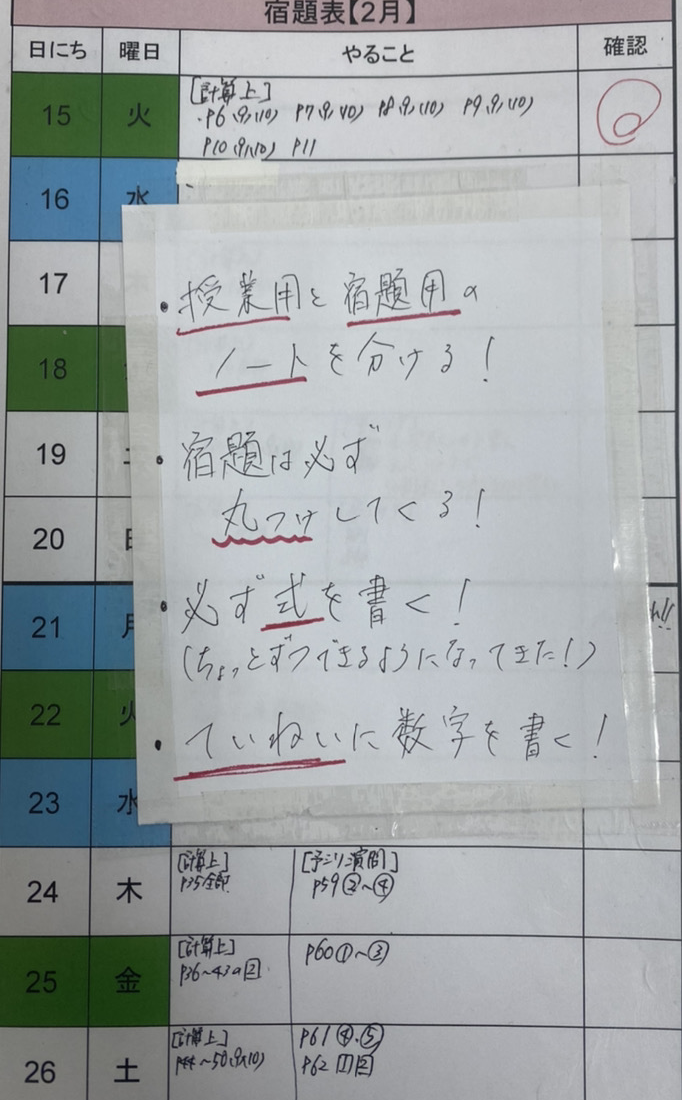 宿題表【2月】
日にち 曜日 やること 確認
15 火 [計算上]
・P6(9)(10) P7(9)(10) P8(9)(10) P9(9)(10)
P10(9)(10) P11
16 水
17
18
19
20
21 月
22 火
23 水
・授業用と宿題用の
ノートを分ける!
・宿題は必ず
丸つけしてくる!
・必ず式を書く!
(ちょっとずつできるようになってきた!)
・ていねいに数字を書く!
24 木 [計算上] [予シリ演問]
P35全部 P59②~④
25 金 [計算上] P60①~③
P36~43の2
26 土 [計算上] P61④.⑤
P44~50(9)(10) P62 1 2